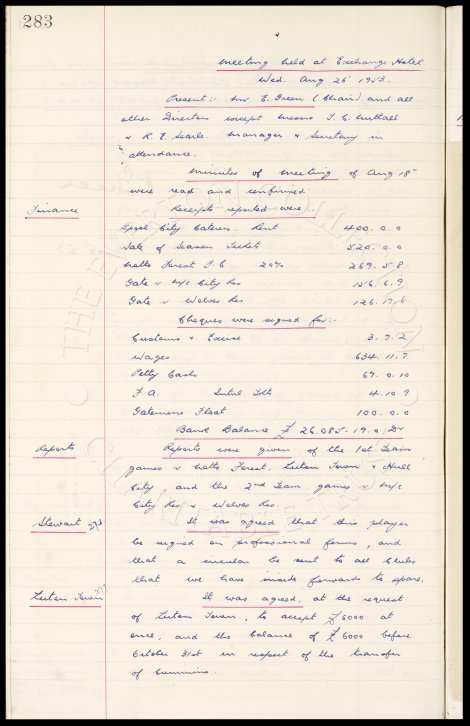 283
Meeting held at Exchange Hotel.
Wed. Aug 26 1953.
Present:- Mr E. Green (Chair) and all
other Directors except Messrs T. C. Nuttall
& R. E. Searle. Manager & Secretary in
attendance.
Minutes of meeting of Aug 18
were read and confirmed
Finance Receipts reported were:-
L'pool City Caterers. Rent 400. 0. 0
Sale of Season Tickets 520. 0. 0
Notts Forest F.C 20% 269. 5. 8
Gate v M/c City Res 156. 6. 9
Gate v Wolves Res 126. 17. 6
Cheques were signed for:-
Customs & Excise 3. 9. 2
Wages 634. 11. 7
Petty Cash 69. 0. 10
F.A. Intnl Tkts 4. 10. 9
Gatemens Float 100. 0. 0
Bank Balance £ 26.085. 19. Dr
Reports Reports were given of the 1st Team
games v Notts Forest, Luton Town & Hull
City, and the 2nd Team games v M/c
City Res & Wolves Res.
Stewart 273 It was agreed that this player
be signed on professional forms, and
that a circular be sent to all Clubs
that we have inside forwards to spare.
Luton Town It was agreed, at the request
of Luton Town, to accept £6000 at
once, and the balance of £6000 before
October 31st in respect of the transfer
of Cummins.